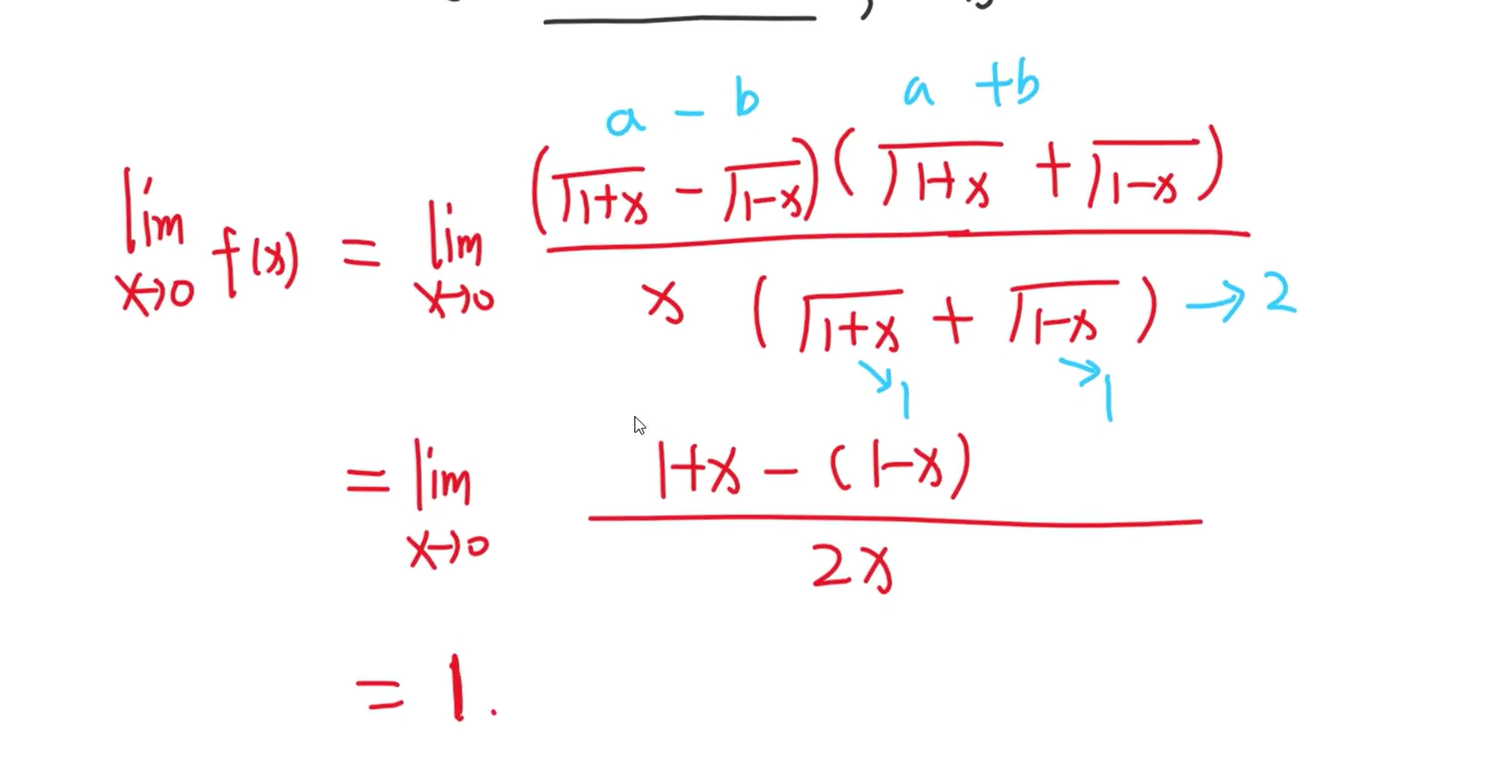 a - b a + b
lim x→0 f(x) = lim x→0 (√1+x - √1-x)(√1+x + √1-x) / x (√1+x + √1-x) → 2
↘1 ↘1
= lim x→0 1+x - (1-x) / 2x
= 1.